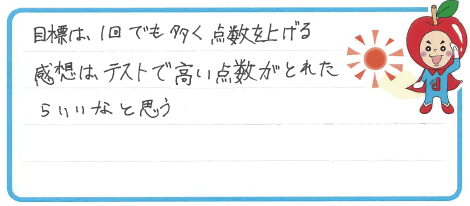 目標は、1回でも多く点数を上げる
感想は、テストで高い点数がとれた
らいいなと思う